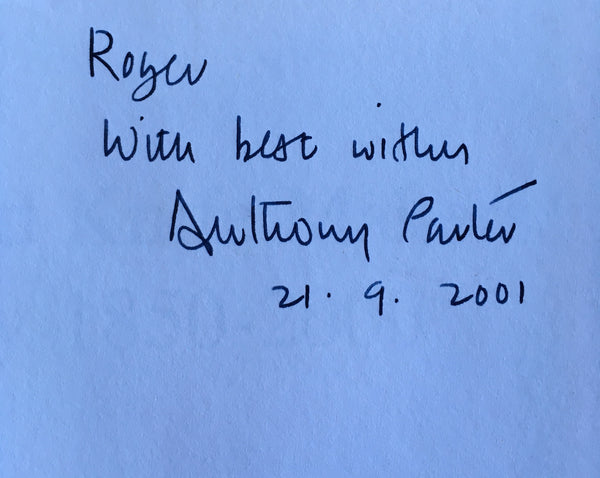 Roger
With best wishes
Anthony Carter
21. 9. 2001